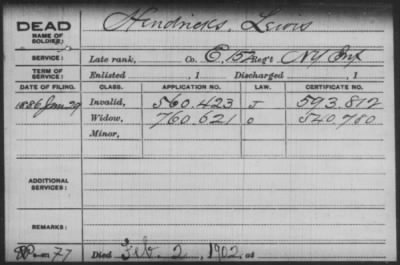 DEAD
NAME OF SOLDIER: Hendricks, Lewis
SERVICE: Late rank, Co. E. 152 Reg't NY Inf
TERM OF SERVICE: Enlisted , 1 Discharged , 1
DATE OF FILING. CLASS. APPLICATION NO. LAW. CERTIFICATE NO.
1886 Jan 29 Invalid, 560.423 J 593.812
Widow, 760.621 O 540.780
Minor,
ADDITIONAL SERVICES:
REMARKS:
77 Died Feb. 2, 1902, at